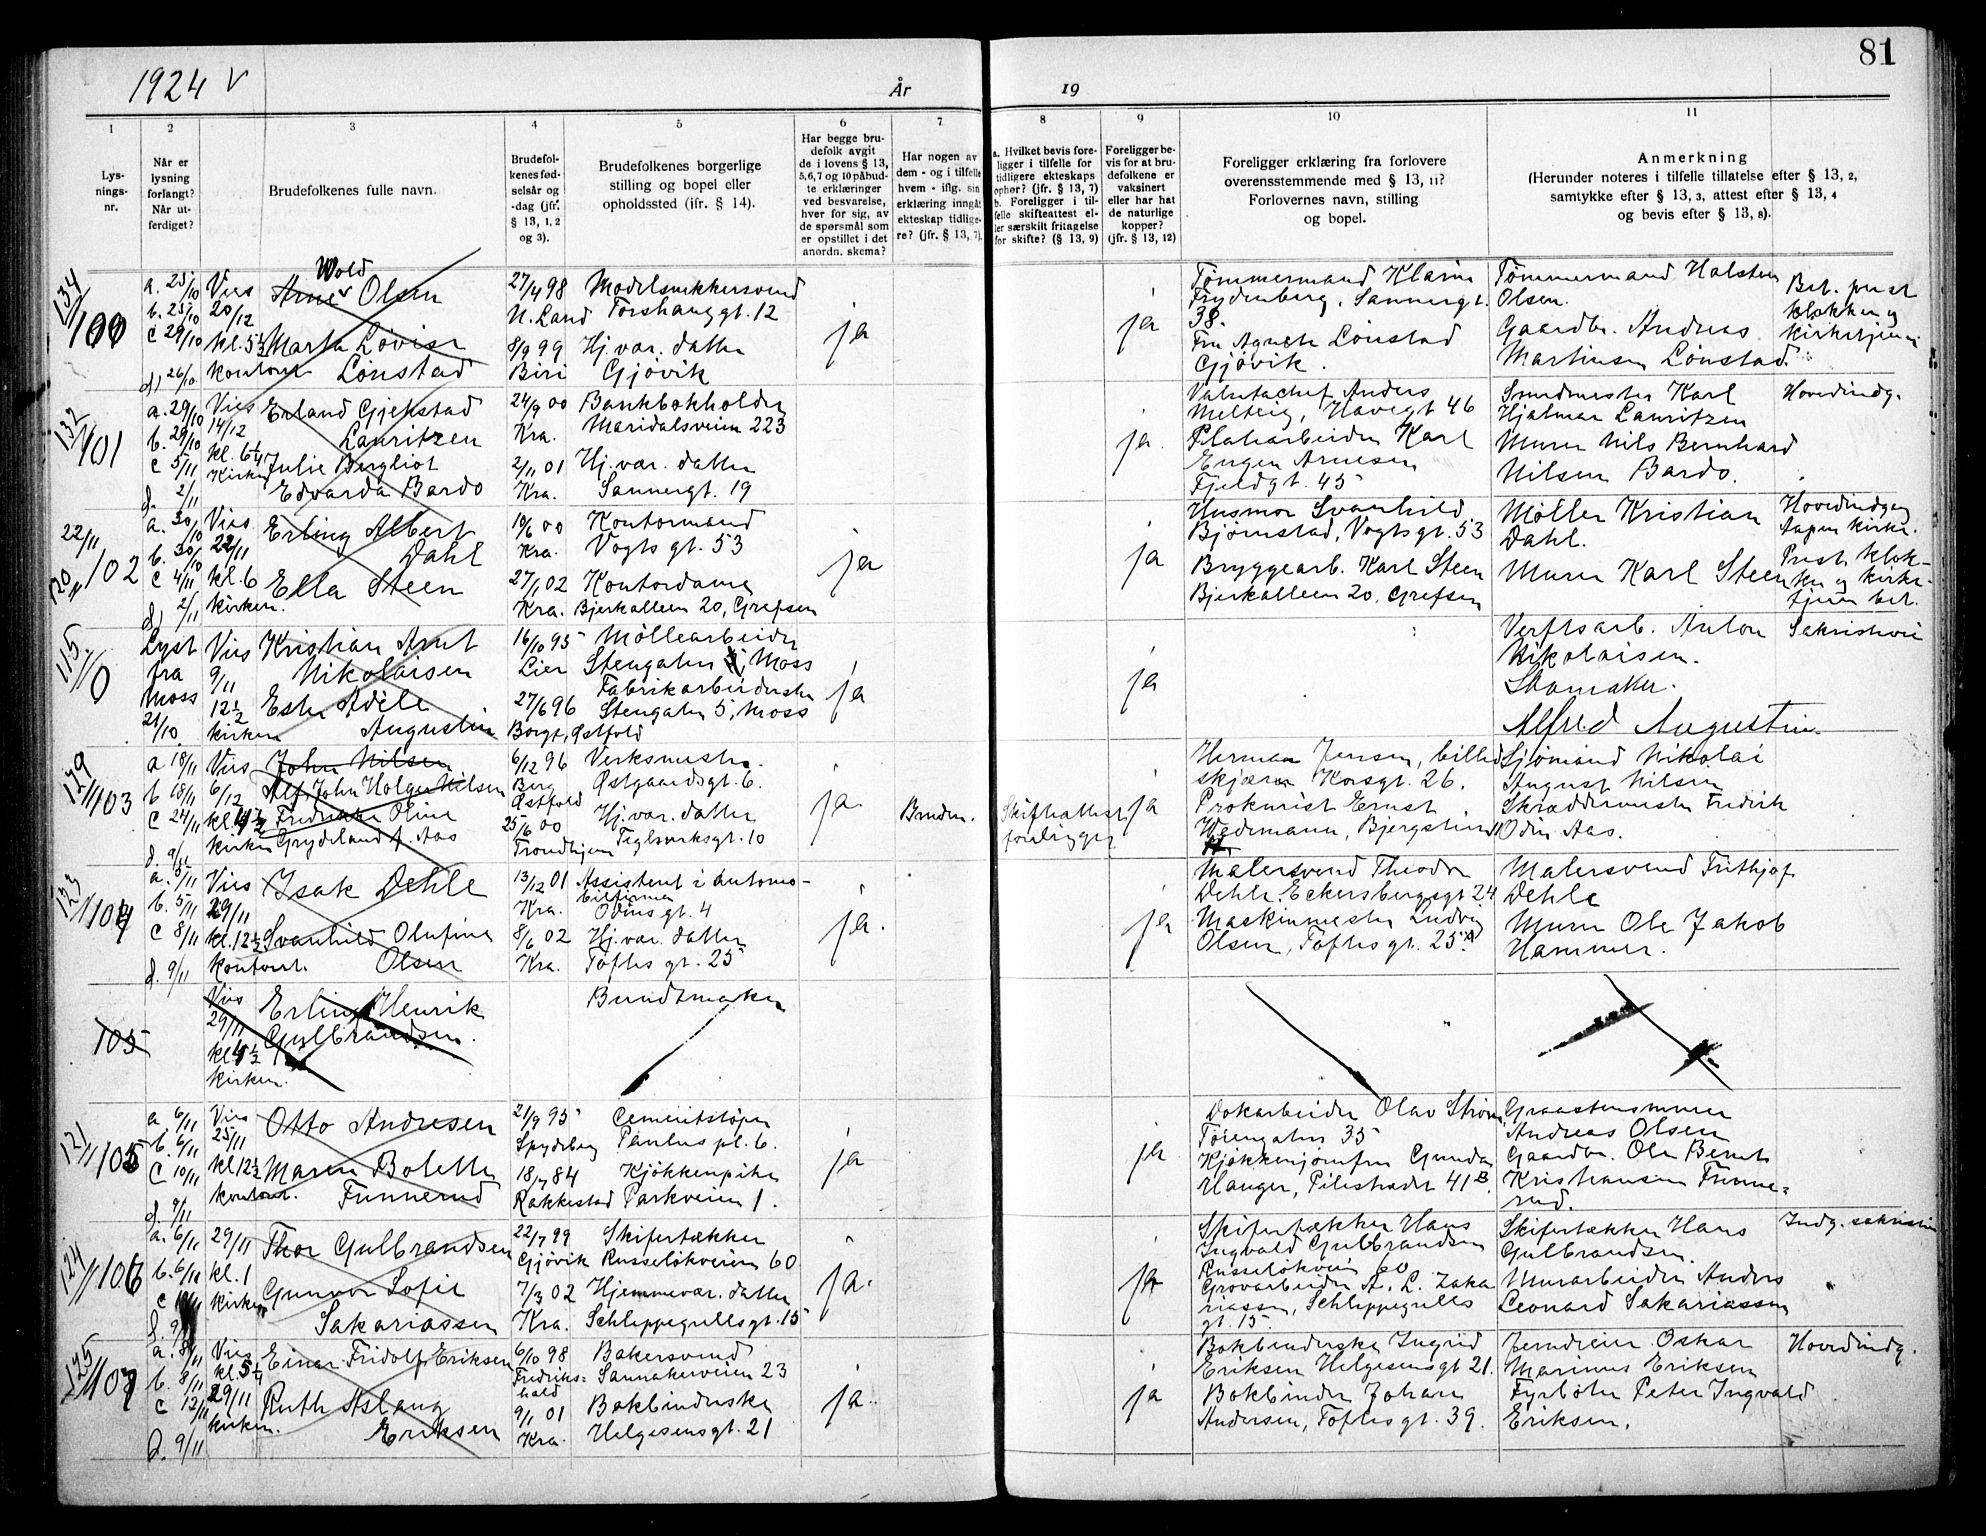 81
1924 V
År
19
1
2
3
4
5
6
7
8
9
10
11
Lys-
nings-
nr.
Når er
lysning
forlangt?
Når ut-
ferdiget?
Brudefolkenes fulle navn.
Brudefol-
kenes fød-
selsår og
-dag (jfr.
§ 13, 1, 2
og 3).
Brudefolkenes borgerlige
stilling og bopel eller
opholdssted (ifr. § 14).
Har begge bru-
defolk avgit
de i lovens § 13,
5,6,7 og 10 påbud-
te erklæringer
ved besvarelse,
hver for sig, av
de spørsmål som
er opstillet i det
anordn. skema?
Har nogen av
dem - og i tilfelle
hvem - iflg. sin
erklæring inngåt
ekteskap tidlige-
re? (jfr. § 13, 7).
a. Hvilket bevis fore-
ligger i tilfelle for
tidligere ekteskaps
ophør? (jfr. § 13, 7)
b. Foreligger i til-
felle skifteattest el-
ler særskilt fritagelse
for skifte? (§ 13, 9)
Foreligger be-
vis for at bru-
defolkene er
vaksinert
eller har hat
de naturlige
kopper?
(jfr. § 13, 12)
Foreligger erklæring fra forlovere
overensstemmende med § 13, 11?
Forlovernes navn, stilling
og bopel.
Anmerkning
(Herunder noteres i tilfelle tillatelse efter § 13, 2,
samtykke efter § 13, 3, attest efter § 13, 4
og bevis efter § 13, 8).
134
100
a. 25/10
b. 25/10
c 29/10
d) 26/10
Vies
20/12
kl. 5½
kontoret
Wold
Arne Olsen
Marta Lovise
Lønstad
27/4 98
N. Land
8/9 99
Biri
Modelsnekkersvend
Torshauggt. 12
Hj. var. datter
Gjøvik
ja
ja
Tømmermand Klaus
Frydenberg, Sannergt.
38.
Fru Agnete Lönstad
Gjövik.
Tømmermand Halsten
Olsen.
Gaardbr. Andreas
Martinsen Lønstad.
Bet. prest
klokker og
kirketjener
132
101
a. 29/10
b. 29/10
c 5/11
d. 2/11
Vies
14/12
kl. 6¼
Kirken
Erland Gjekstad
Lauritzen
Julie Bergliot
Edvarda Bardo
24/9 00
Kra.
2/11 01
Kra.
Bankbokholder
Maridalsveien 223
Hj. var. datter
Sannergt. 19
ja.
Valutachef Anders
Melteig, Havegt 46
Platearbeider Karl
Eugen Arnesen
Fjeldgt. 45
Smedmester Karl
Hjalmar Lauritzen
Murer Nils Bernhard
Nilsen Bardo.
Hovedindg.
22/11
120
102
a. 30/10
b. 30/10
c 4/11
d) 2/11
Vies
22/11
kl. 6
kirken.
Erling Albert
Dahl
Ella Steen
19/6 00
Kra.
27/1 02
Kra.
Kontormand
Vogts gt. 53
Kontordame
Bjerkalleen 20, Grefsen
ja
ja
Husmor Svanhild
Bjørnstad, Vogtsgt. 53
Bryggearb. Karl Steen
Bjerkalleen 20. Grefsen
Møller Kristian
Dahl.
Murer Karl Steen
Hovedindgang
Aapen kirke.
Prest, klok-
ker og kirke-
tjener bet.
115
0
Lyst
fra
Moss
21/10
Vies
9/11
12½
kirken
Kristian Arnt
Nikolaisen
Ester Adéle
Augustin
16/10 95
Lier
27/6 96
Borge, Østfold
Möllearbeider
Stengaten 5, Moss
Fabrikarbeiderske
Stengaten 5, Moss
ja
ja
Verftsarb. Anton
Nikolaisen.
Skomaker.
Alfred Augustin.
Sakristiet
129
103
a 18/11
b 18/11
c 24/11
d. 9/11
Vies
6/12
kl. 4½
kirken
John Nilsen
Alf John Holger Nilsen
Fredrikke Oline
Grydeland f. Aas
6/12 96
Berg
Østfold
25/6 00
Trondhjem
Verksmester.
Østgaardsgt. 6.
Hj. var. datter
Teglverksgt. 10
ja.
Bruden.
Skifteattest
foreligger
ja
Herman Jensen, billed
skjærer Korsgt. 26.
Prokurist Ernst
Wedemann, Bjergstien 11
Sjömand Nikolai
August Nilsen
Skræddermester Fredrik
Odin Aas.
123
104
a. 5/11
b. 5/11
c 8/11
d. 9/11
Vies
29/11
kl. 12½
kontoret.
Isak Dehle
Svanhild Olufine
Olsen
13/12 01
Kra.
8/6 02
Kra.
Assistent i automo-
bilfirma
Odins gt. 4
Hj. var. datter
Toftes gt. 25
ja.
ja
Malersvend Theodor
Dehle Eckersbergsgt 24
Maskinmester Ludvig
Olsen, Toftes gt. 25.
Malersvend Frithjof
Dehle
Murer Ole Jakob
Hammer.
105
Vies
29/11
kl 4½
kirken.
Erling Henrik
Gulbrandsen.
Bundtmaker
121
105
a. 6/11
b. 6/11
c 10/11
d. 9/11
Vies
25/11
kl 12½
kontoret.
Otto Andresen
Maren Bolette
Funnerud
21/9 95
Spydeberg
18/7 84
Rakkestad
Cementstøper
Paulus pl. 6.
Kjøkkenpike
Parkveien 1.
ja
ja
Dokarbeider Olav Strøm
Töiengaten 35
Kjøkkenjomfru Gunda
Hauger, Pilestrædet 41 B.
Graastensmurer
Andreas Olsen
Gaardbr. Ole Bernt
Kristiansen Funne=
rud.
124
106
a. 6/11
b. 6/11
c 10/11
d. 9/11
29/11
kl. 1
kirken
Thor Gulbrandsen
Gunvor Sofie
Sakariassen
22/7 99
Gjövik
7/3 02
Kra.
Skifertækker
Russeløkveien 60
Hjemmevær. datter
Schleppegrellsgt. 15
ja.
ja
Skifertækker Hans
Ingvald Gulbrandsen
Russeløkveien 60
Grovarbeider A. L. Zaka
riassen, Schleppegrells
gt. 15.
Skifertækker Hans
Gulbrandsen.
Murarbeider Anders
Leonard Sakariassen
Indg. sakristiet
125
107
a. 8/11
b. 8/11
c 12/11
d. 9/11
Vies
kl. 5¼
29/11
kirken.
Einar Fridolf Eriksen
Ruth Aslaug
Eriksen
6/10 98
Fredriks-
hald
9/1 01
Kra.
Bakersvend
Sannakerveien 23
Bokbinderske
Helgesensgt. 21
ja.
ja
Bokbinderske Ingrid
Eriksen Helgesensgt 21.
Bokbinder Johan
Andersen, Toftes gt. 39.
Jerndreier Oskar
Marinus Eriksen
Fyrböter Peter Ingvald
Eriksen.
Hovedindg.